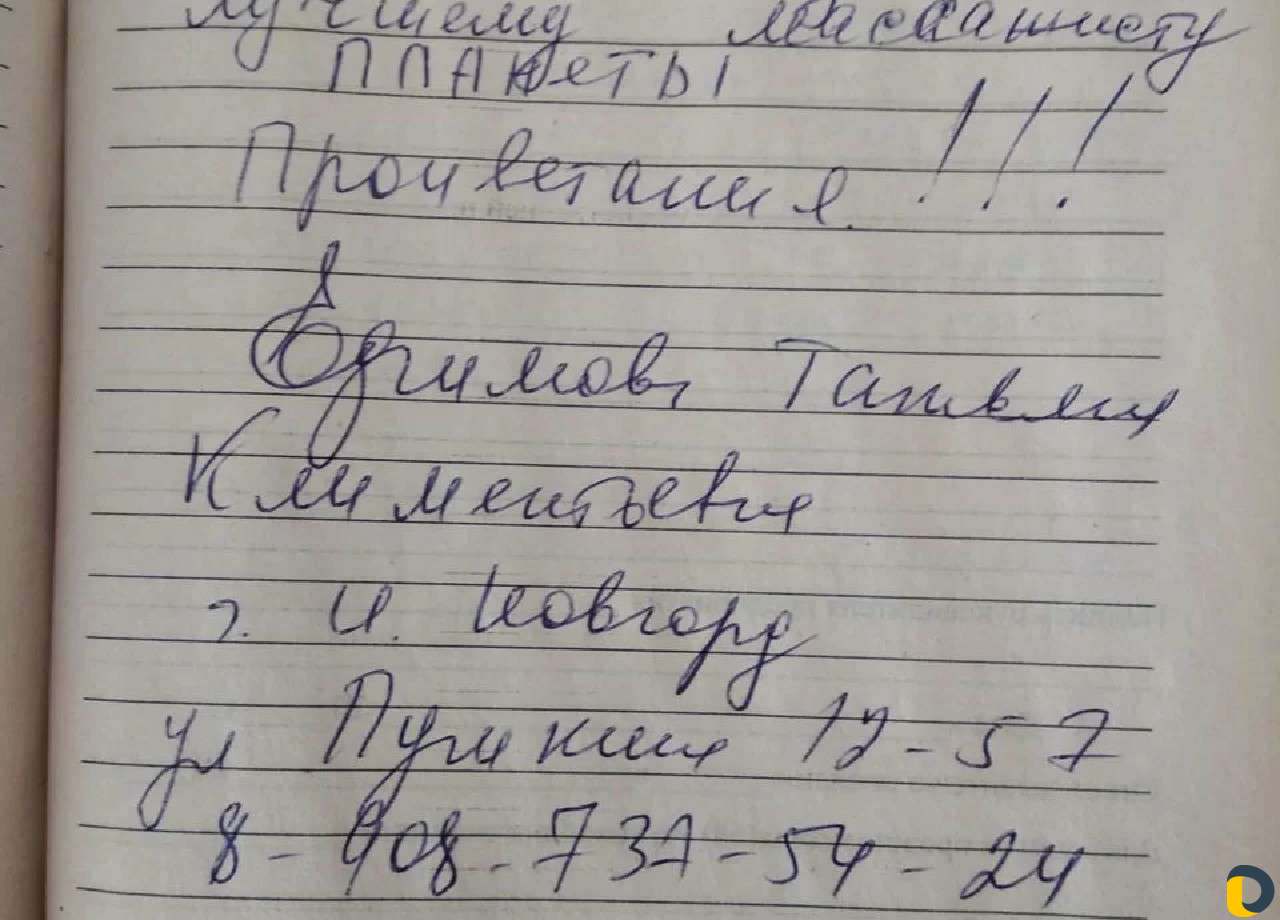 лучшему массажисту
ПЛАНЕТЫ
Процветания !!!
Ефимова Татьяна
Климентьевна
г. Н. Новгород
ул Пушкина 12-57
8-908-737-54-24